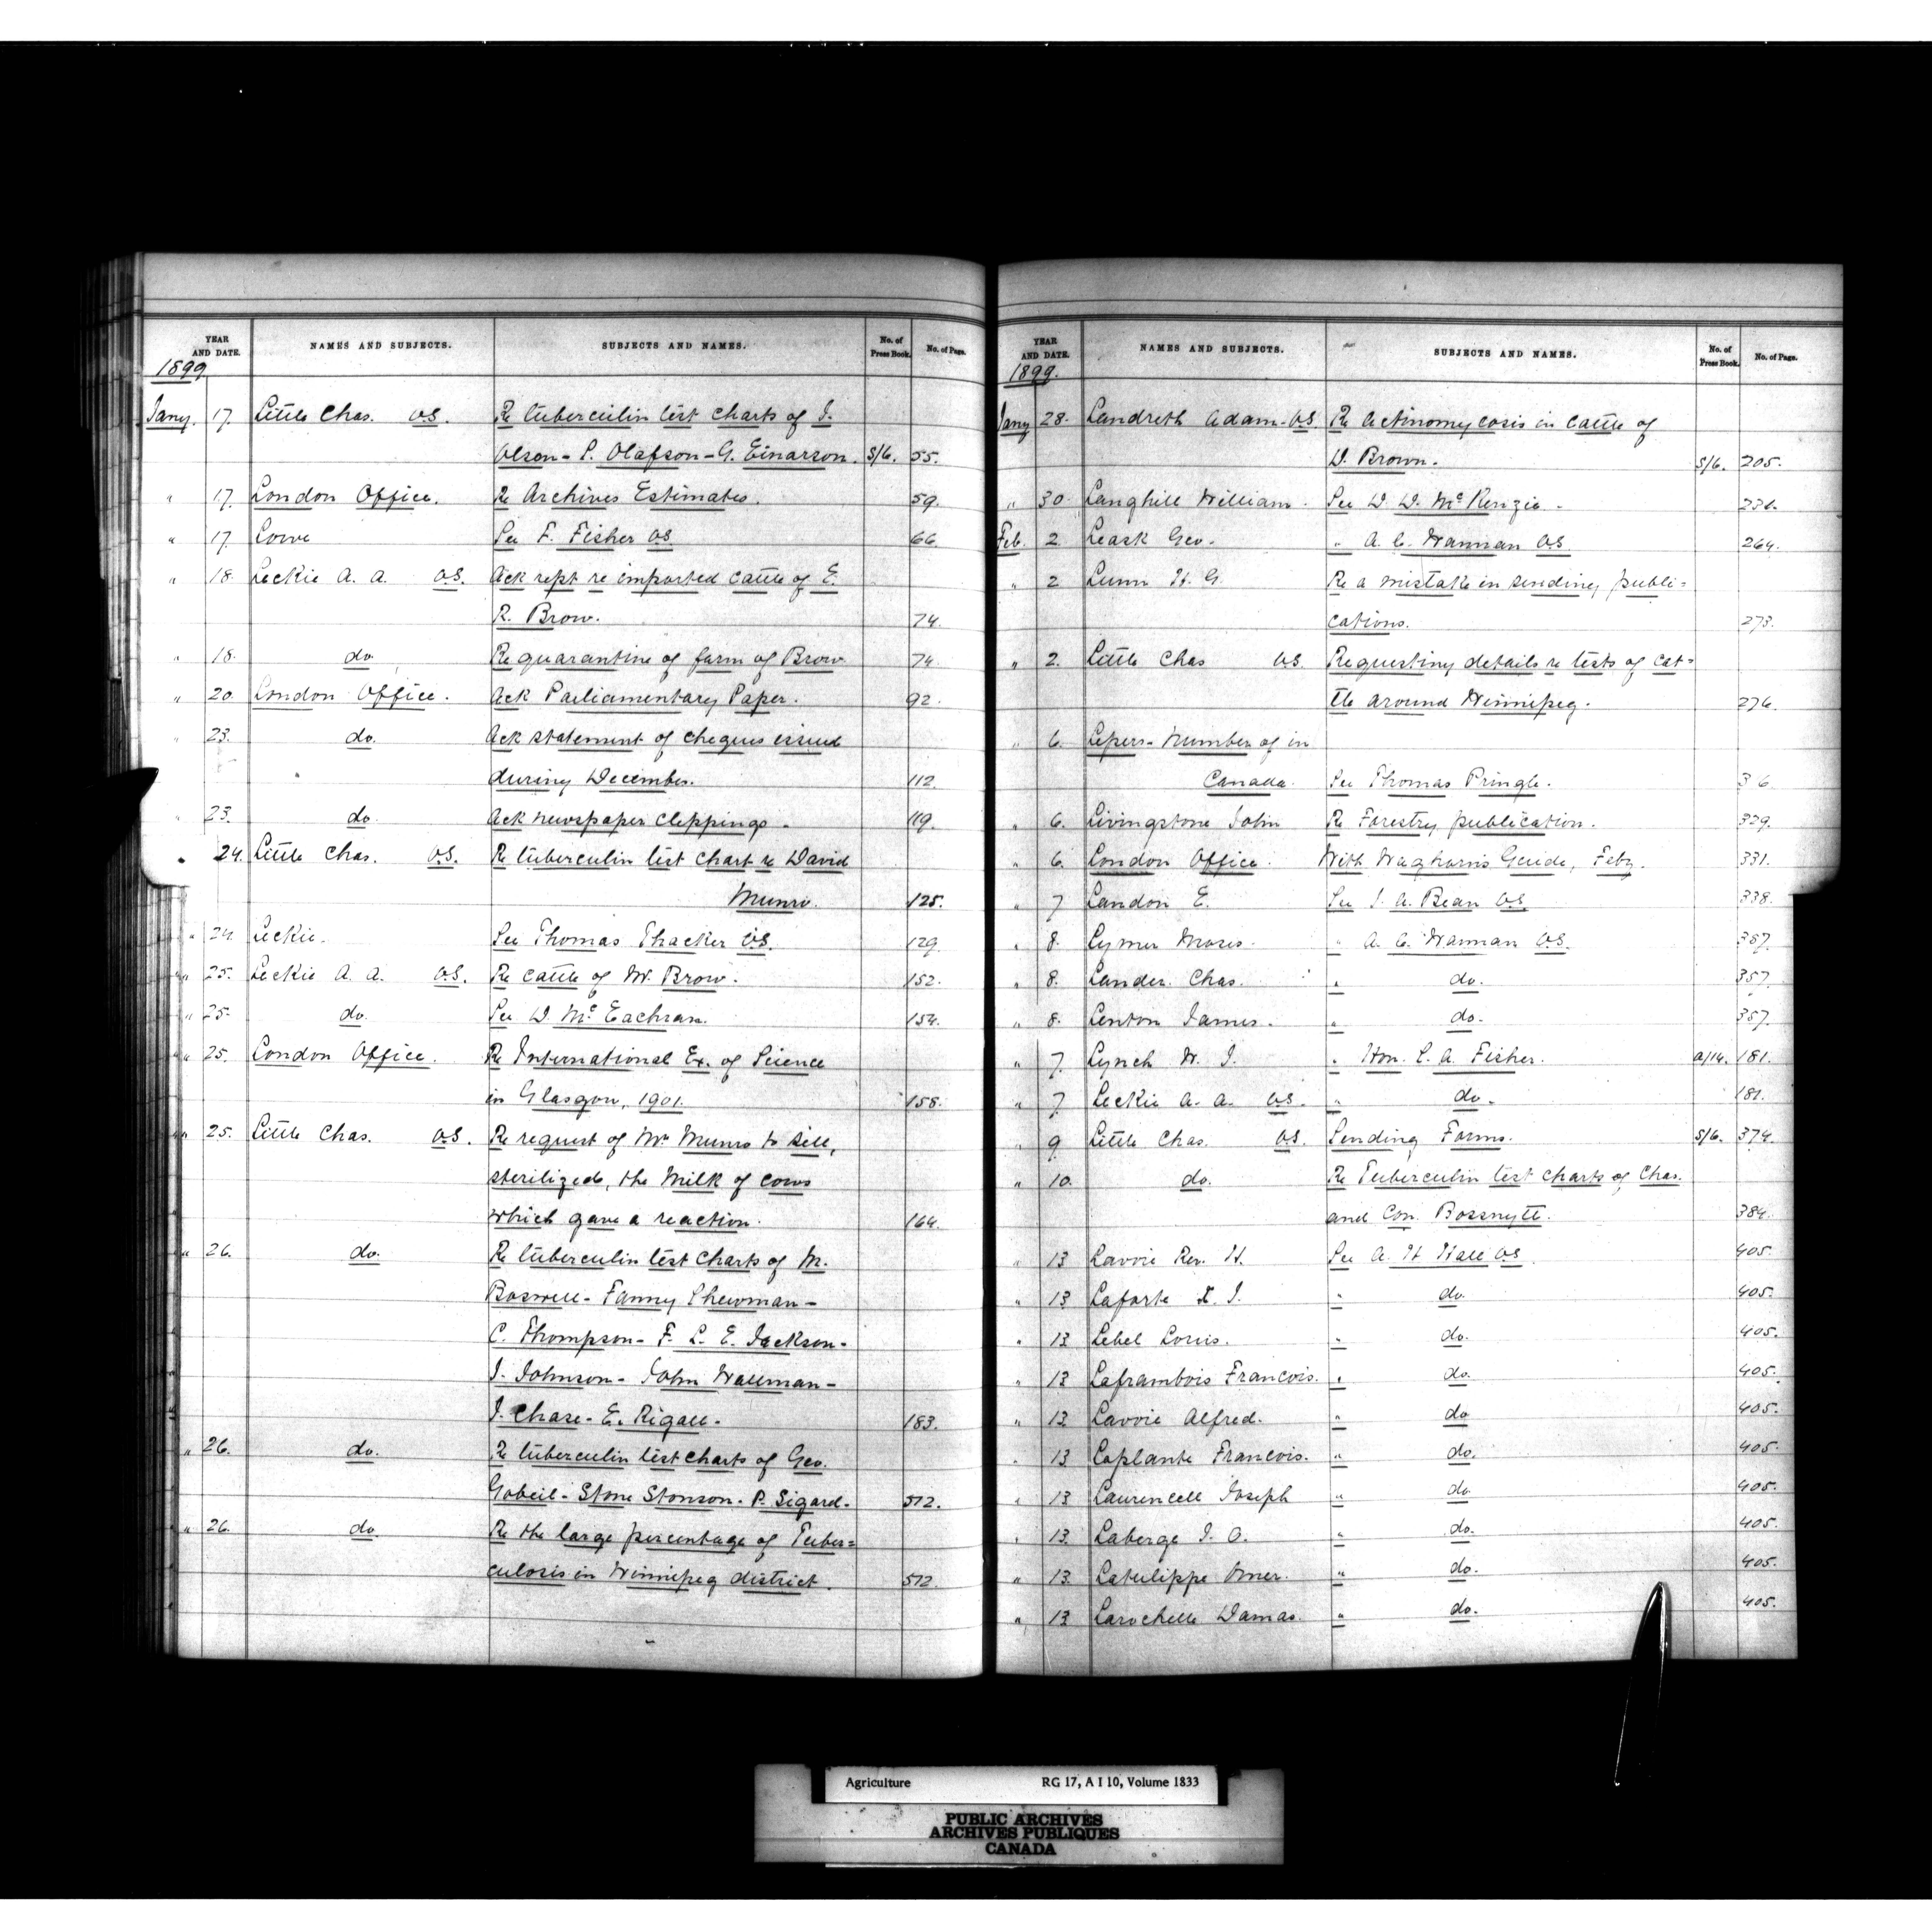 YEAR AND DATE. NAMES AND SUBJECTS. SUBJECTS AND NAMES. No. of Press Book. No. of Page.
1899
Jany. 17. Little Chas. V.S. Re tuberculin test charts of J.
Olson - P. Olafson - G. Einarson. S/6. 55.
" 17. London Office. Re Archives Estimates. 59.
" 17. Lowe See F. Fisher VS 66.
" 18. Leckie A. A. V.S. Ack rept re imported cattle of E.
R. Brow. 74.
" 18. do Re quarantine of farm of Brow 74.
" 20. London Office. Ack Parliamentary Paper. 92.
" 23. do. Ack statement of cheques issued
during December. 112.
" 23. do. Ack newspaper clippings. 119.
" 24. Little Chas. V.S. Re tuberculin test chart re David
Munro. 125.
" 24. Leckie. See Thomas Thacker V.S. 129.
" 25. Leckie A. A. V.S. Re cattle of Mr. Brow. 152.
" 25. do. See D. McEachran. 154.
" 25. London Office. Re International Ex. of Science
in Glasgow, 1901. 158.
" 25. Little Chas. V.S. Re request of Mr Munro to sell,
sterilized, the Milk of cows
which gave a reaction. 164.
" 26. do. Re tuberculin test charts of M.
Boswell - Fanny Shewman -
C. Thompson - F. L. E. Jackson -
J. Johnson - John Wallman -
J. Chase - E. Rigall - 183.
" 26. do. Re tuberculin test charts of Geo.
Gobeil - Stone Stonson - P. Sigard. 512.
" 26. do. Re the large percentage of Tuber=
culosis in Winnipeg district. 512.
YEAR AND DATE. NAMES AND SUBJECTS. SUBJECTS AND NAMES. No. of Press Book. No. of Page.
1899.
Jany 28. Landreth Adam - VS Re Actinomycosis in cattle of
D. Brown. S/6. 205.
" 30 Langhill William. See D. D. McKenzie.
Feb. 2. Leask Geo. " A. C. Wanman V.S. 264.
" 2 Lunn H. G. Re a mistake in sending publi=
cations. 273.
" 2. Little Chas V.S. Requesting details re tests of cat=
tle around Winnipeg. 276.
" 6. Lepers - Number of in
Canada. See Thomas Pringle.
" 6. Livingstone John Re Forestry publication. 329.
" 6. London Office. With Waghorn's Guide, Feby. 331.
" 7 Landon E. See J. A. Bean V.S. 338.
" 8. Lymer Moses. " A. C. Wanman V.S. 357.
" 8. Lander Chas. " do. 357.
" 8. Lenton James. " do. 357.
" 7. Lynch W. J. " Hon. S. A. Fisher. A/14. 181.
" 7 Leckie A. A. V.S. " do. 181.
" 9 Little Chas. V.S. Sending Forms. S/6. 374.
" 10. do. Re Tuberculin test charts of Chas.
and Con. Bossnytt. 384.
" 13 Lavoie Rev. H. See A. H Hall VS 405.
" 13 Laforte J. " do. 405.
" 13 Lebel Louis. " do. 405.
" 13 Laframbois Francois. " do. 405.
" 13 Lavoie Alfred. " do 405.
" 13 Laplante Francois. " do. 405.
" 13 Laurencell Joseph " do 405.
" 13. Laberge J. O. " do. 405.
" 13. Latulippe Omer. " do. 405.
" 13 Larochelle Damas. " do. 405.
Agriculture RG 17, A I 10, Volume 1833
PUBLIC ARCHIVES
ARCHIVES PUBLIQUES
CANADA